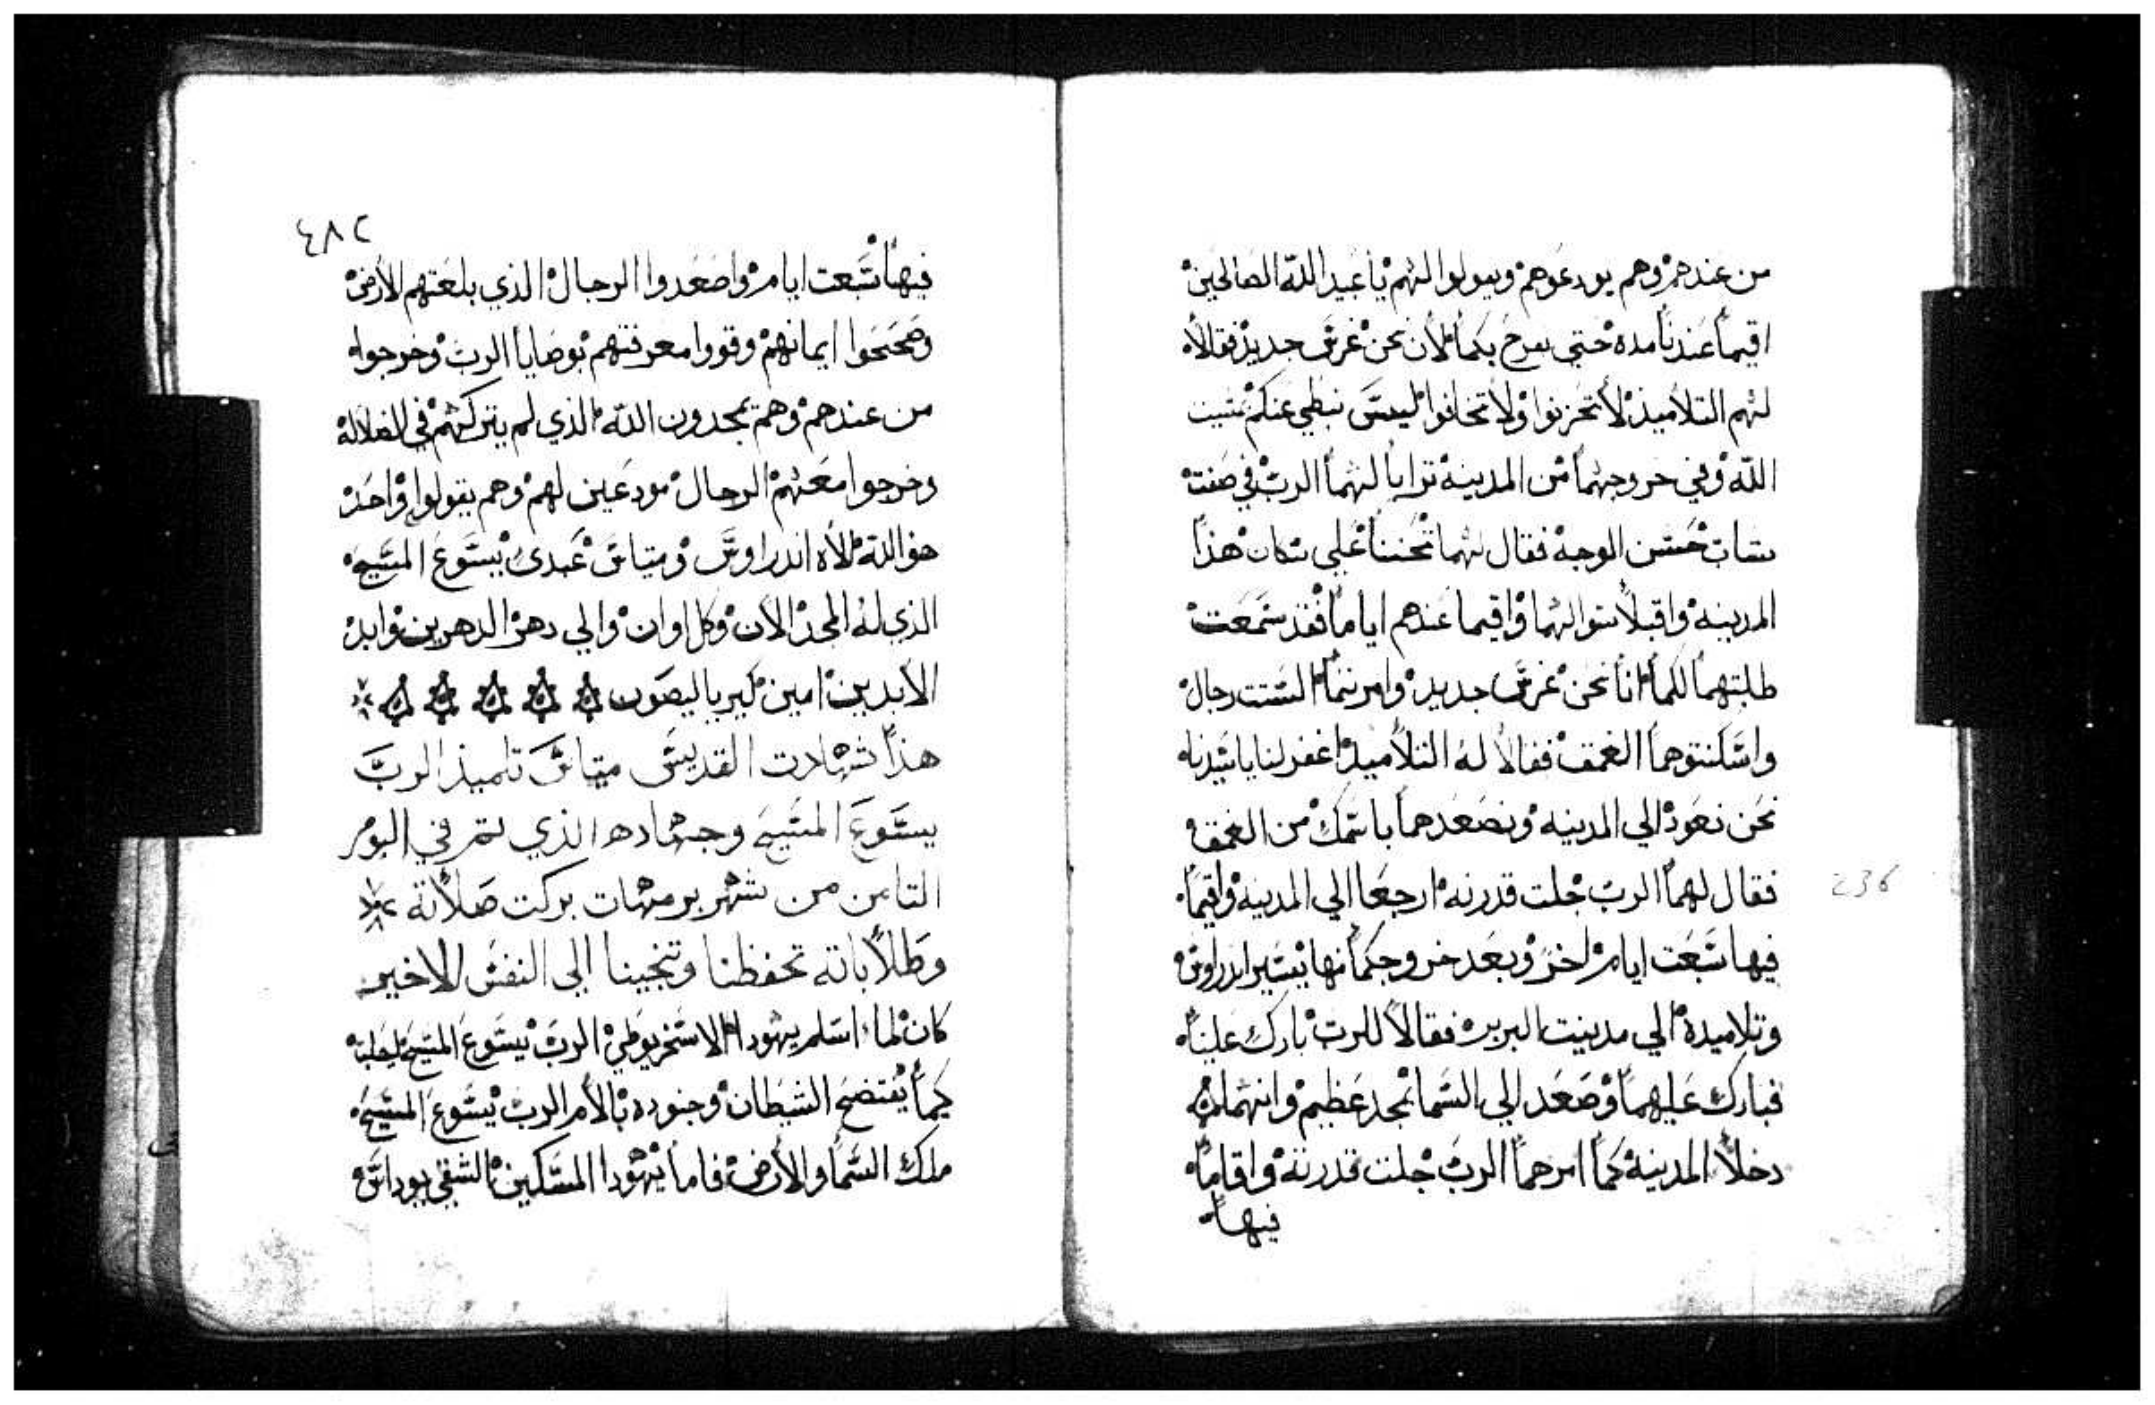 من عندهم وهم يودعوهم ويقولوا لهم يا عبيد الله الصالحين
اقيما عندنا مده حتي نفرح بكما لان نحن غرس جديد فقالاه
لهم التلاميذ لا تحزنوا ولا تخافوا ليس نبطي عنكم بمشيت
الله وفي خروجهما من المدينه ترايا لهما الرب في صفت
شاب حسن الوجه فقال لهما تحننا علي سكان هذا
المدينه واقبلا سوالهما واقيما عندهم اياما فقد سمعت
طلبتهما لكما انا نحن غرس جديد وامرتما الستت رجال
واسكنتوهما الغمق فقالا له التلاميذ اغفر لنا يا سيدنا
نحن نعود الي المدينه ونصعدهما باسمك من الغمق
فقال لهما الرب جلت قدرته ارجعا الي المدينه واقيما
فيها سبعت ايام اخر وبعد خروجكما منها يسير اندراوس
وتلاميده الي مدينت البربر فقالا للرب بارك علينا
فبارك عليهما وصعد الي السما بمجد عظيم وانهما
دخلا المدينه كما امرهما الرب جلت قدرته واقاما
فيها
236
٤٨٢
فيها سبعت ايام واصعدوا الرجال الذي بلعتهم الارض
وصححوا ايمانهم وقووا معرفتهم بوصايا الرب وخرجوا
من عندهم وهم يمجدون الله الذي لم يتركهم في الضلاله
وخرجوا معهم الرجال مودعين لهم وهم يقولوا واحد
هو الله الاه اندراوس ومتياس عبدي يسوع المسيح
الذي له المجد الان وكل اوان والي دهر الدهرين وابد
الابدين امين كيرياليصون
هذا شهادت القديس متياس تلميذ الرب
يسوع المسيح وجهاده الذي تم في اليوم
التامن من شهر برمهات بركت صلاته
وطلاباته تحفظنا وتنجينا الي النفس الاخير
كان لما اسلم يهودا الاسخريوطي الرب يسوع المسيح ليصلب
كما يفتضح الشيطان وجنوده بالامر الرب يسوع المسيح
ملك السما والارض فاما يهودا المسكين الشقي يوداس